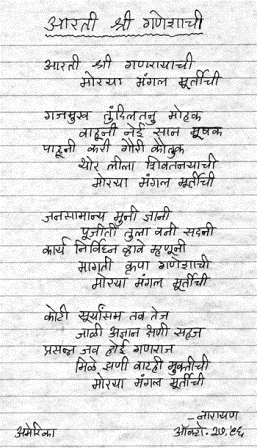 आरती श्री गणेशाची
आरती श्री गणरायाची
मोरया मंगल मूर्तीची
गजमुख तुंदिलतनु मोहक
वाहूनी नेई सान मूषक
पाहूनी करी गौरी कौतुक
थोर लीला शिवतनयाची
मोरया मंगल मूर्तीची
जनसामान्य मुनी ज्ञानी
पूजीती तुला वनी सदनी
कार्य निर्विघ्न व्हावे म्हणूनी
मागती कृपा गणेशाची
मोरया मंगल मूर्तीची
कोटी सूर्यासम तव तेज
जाळी अज्ञान क्षणी सहज
प्रसन्न जव होई गणराज
मिळे क्षणी वाटही मुक्तीची
मोरया मंगल मूर्तीची
- नारायण
अमेरिका ऑक्टो. २७, ९६